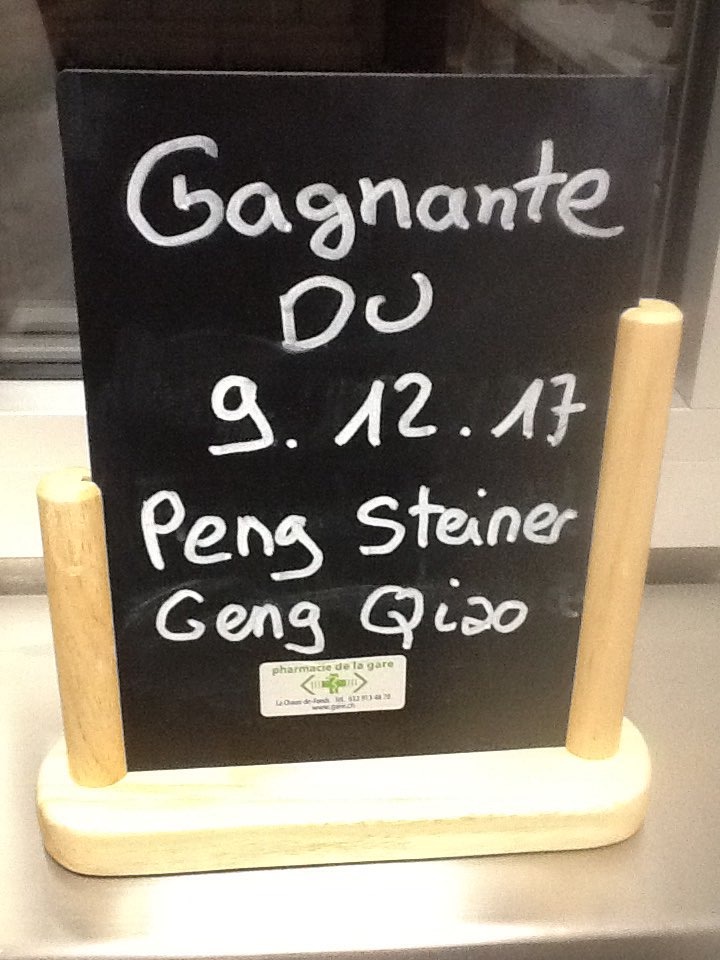 Gagnante
DU
9.12.17
Peng Steiner
Geng Qiao
pharmacie de la gare
La Chaux-de-Fonds Tél. 032 913 48 70
www.gare.ch